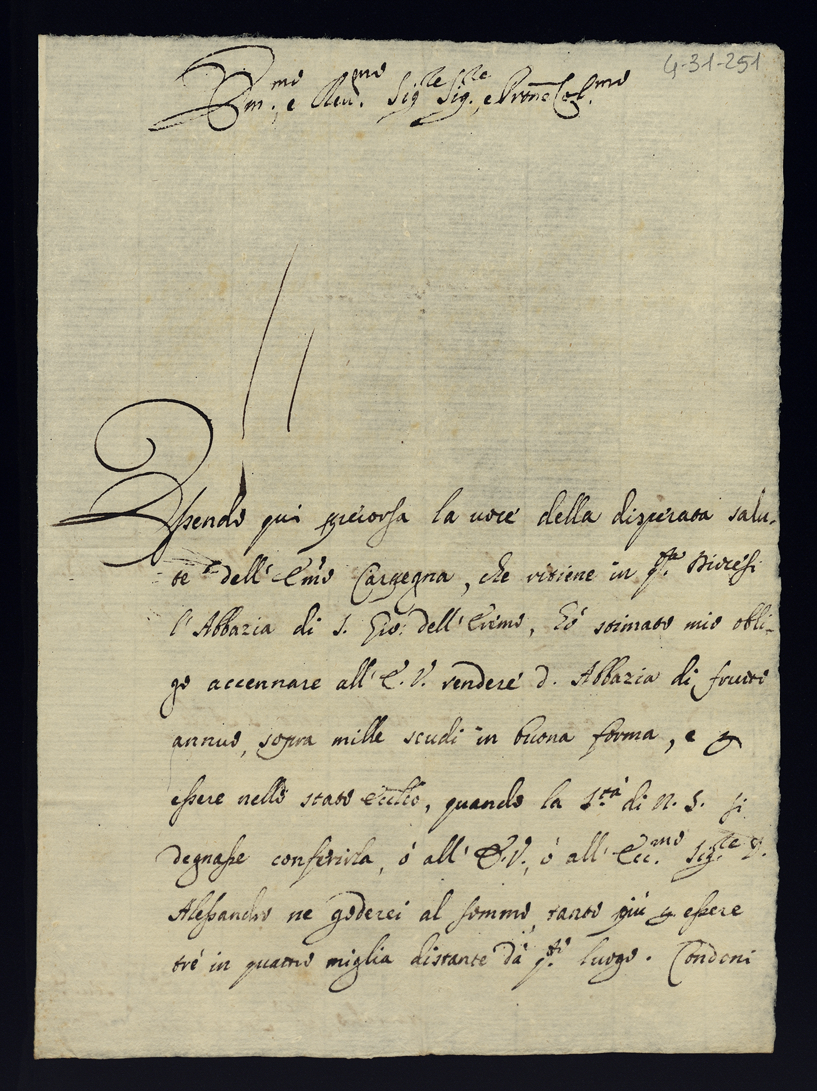 4-31-251
Em.mo, e Reu.mo Sig.re Sig.re, e Prone Col.mo
Essendo qui precorsa la uoce della disperata salu-
te dell' Em̃o Carpegna, che ritiene in q.ta Diocesi
l'Abbazia di S. Gio: dell' Eremo, hò stimato mio obli-
go accennare all' E.V. rendere d. Abbazia di frutto
annuo, sopra mille scudi in buona forma, e p
essere nello stato Eccl̃co, quando la S.tà di N. S. si
degnasse conferirla, ò all' E.V., ò all' Ecc.mo Sig.re D.
Alessandro ne goderei al sommo, tanto più p essere
trè in quattro miglia distante dà q.to luogo. Condoni